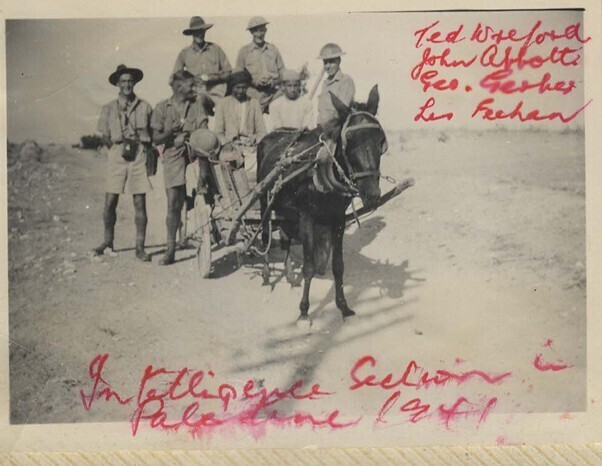 Ted Wreford
John Abbott
Geo. Gerber
Les Feehan
Intelligence Section in
Palestine 1941